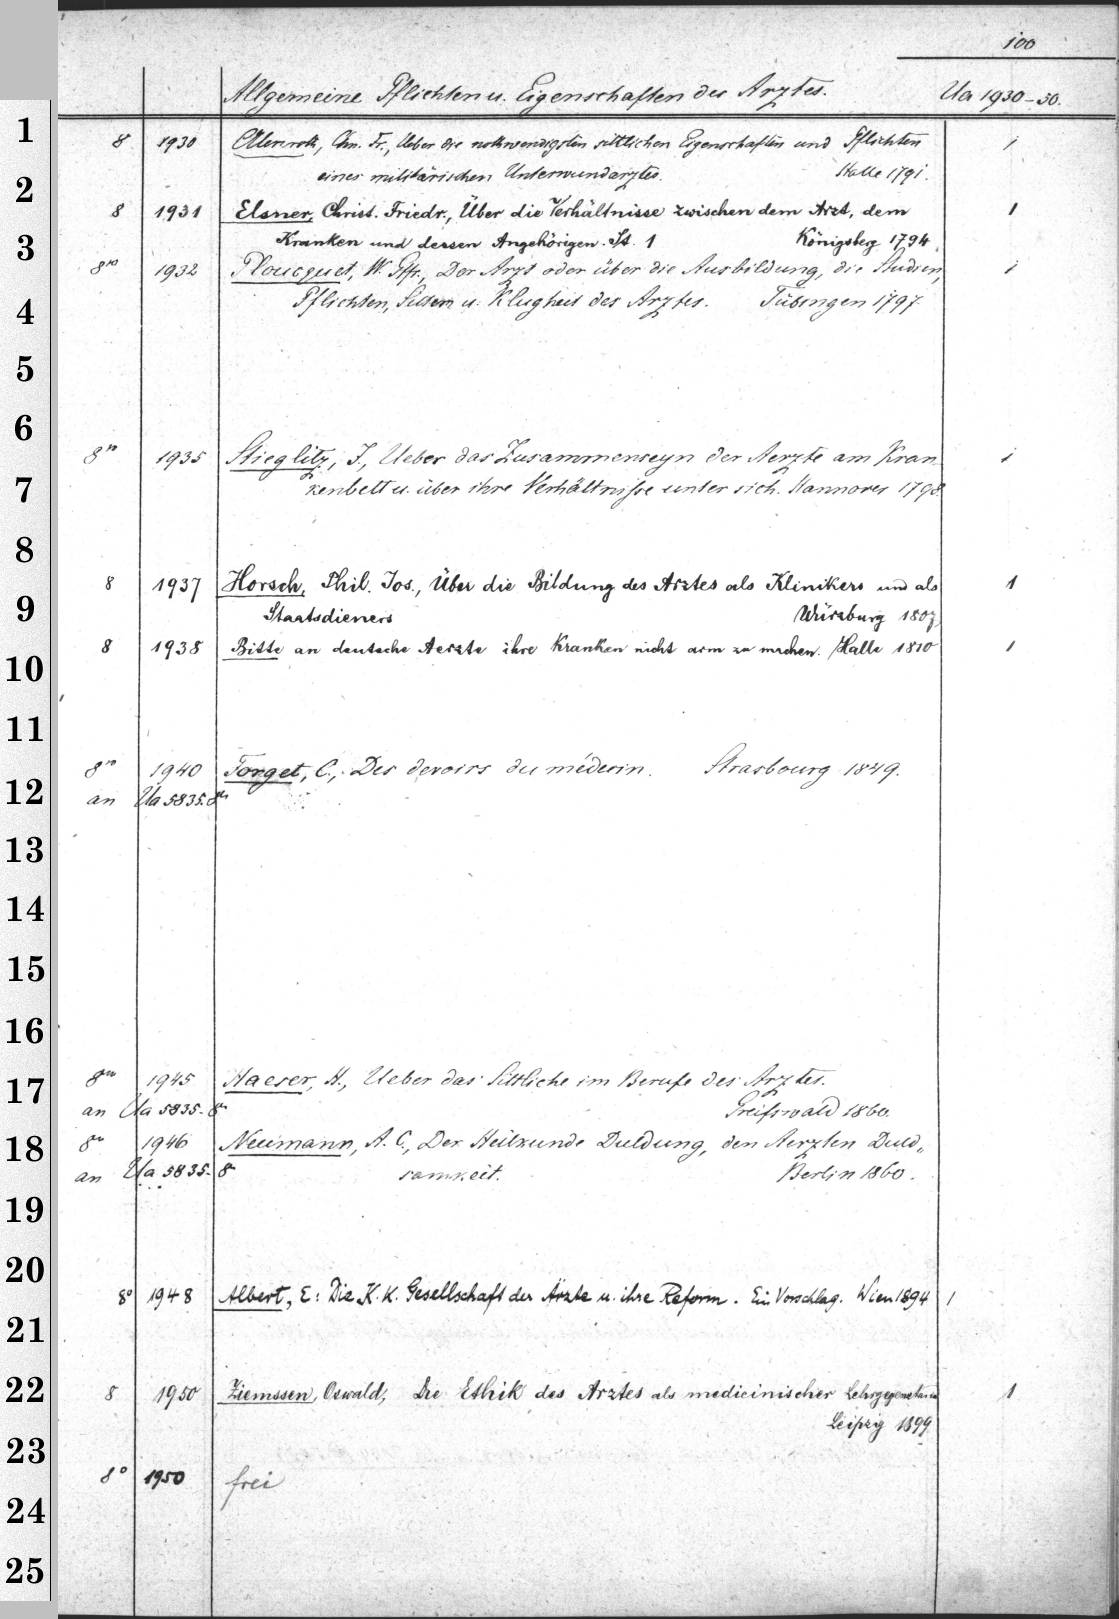 100
Allgemeine Pflichten u. Eigenschaften des Arztes. Ua 1930-50.
1
8 1930 Ollenroth, Chn. Fr., Ueber die nothwendigsten sittlichen Eigenschaften und Pflichten 1
eines militärischen Unterwundarztes. Halle 1791.
2
8 1931 Elsner, Christ. Friedr., Über die Verhältnisse zwischen dem Arzt, dem 1
3
Kranken und dessen Angehörigen. St. 1 Königsberg 1794
8vo 1932 Ploucquet, W. Gfr., Der Arzt oder über die Ausbildung, die Studien, 1
4
Pflichten, Sitten u. Klugheit des Arztes. Tübingen 1797.
5
6
8vo 1935 Stieglitz, J., Ueber das Zusammenseyn der Aerzte am Kran- 1
7
kenbett u. über ihre Verhältnisse unter sich. Hannover 1798.
8
8 1937 Horsch, Phil. Jos., Über die Bildung des Arztes als Klinikers und als 1
9
Staatsdieners Würzburg 1807
8 1938 Bitte an deutsche Aerzte ihre Kranken nicht arm zu machen. Halle 1810 1
10
11
8vo 1940 Forget, C., Des devoirs du médecin. Strasbourg 1849.
12
an Ua 5835. 8vo
13
14
15
16
8vo 1945 Haeser, H., Ueber das Sittliche im Berufe des Arztes.
17
an Ua 5835. 8vo Greifswald 1860.
8vo 1946 Neumann, A. C., Der Heilkunde Duldung, den Aerzten Duld„
18
an Ua 5835. 8 samkeit. Berlin 1860.
19
20
8° 1948 Albert, E: Die K. K. Gesellschaft der Ärzte u. ihre Reform. Ein Vorschlag. Wien 1894 1
21
22
8 1950 Ziemssen, Oswald, Die Ethik des Arztes als medicinischer Lehrgegenstand 1
Leipzig 1899.
23
8° 1950 frei
24
25